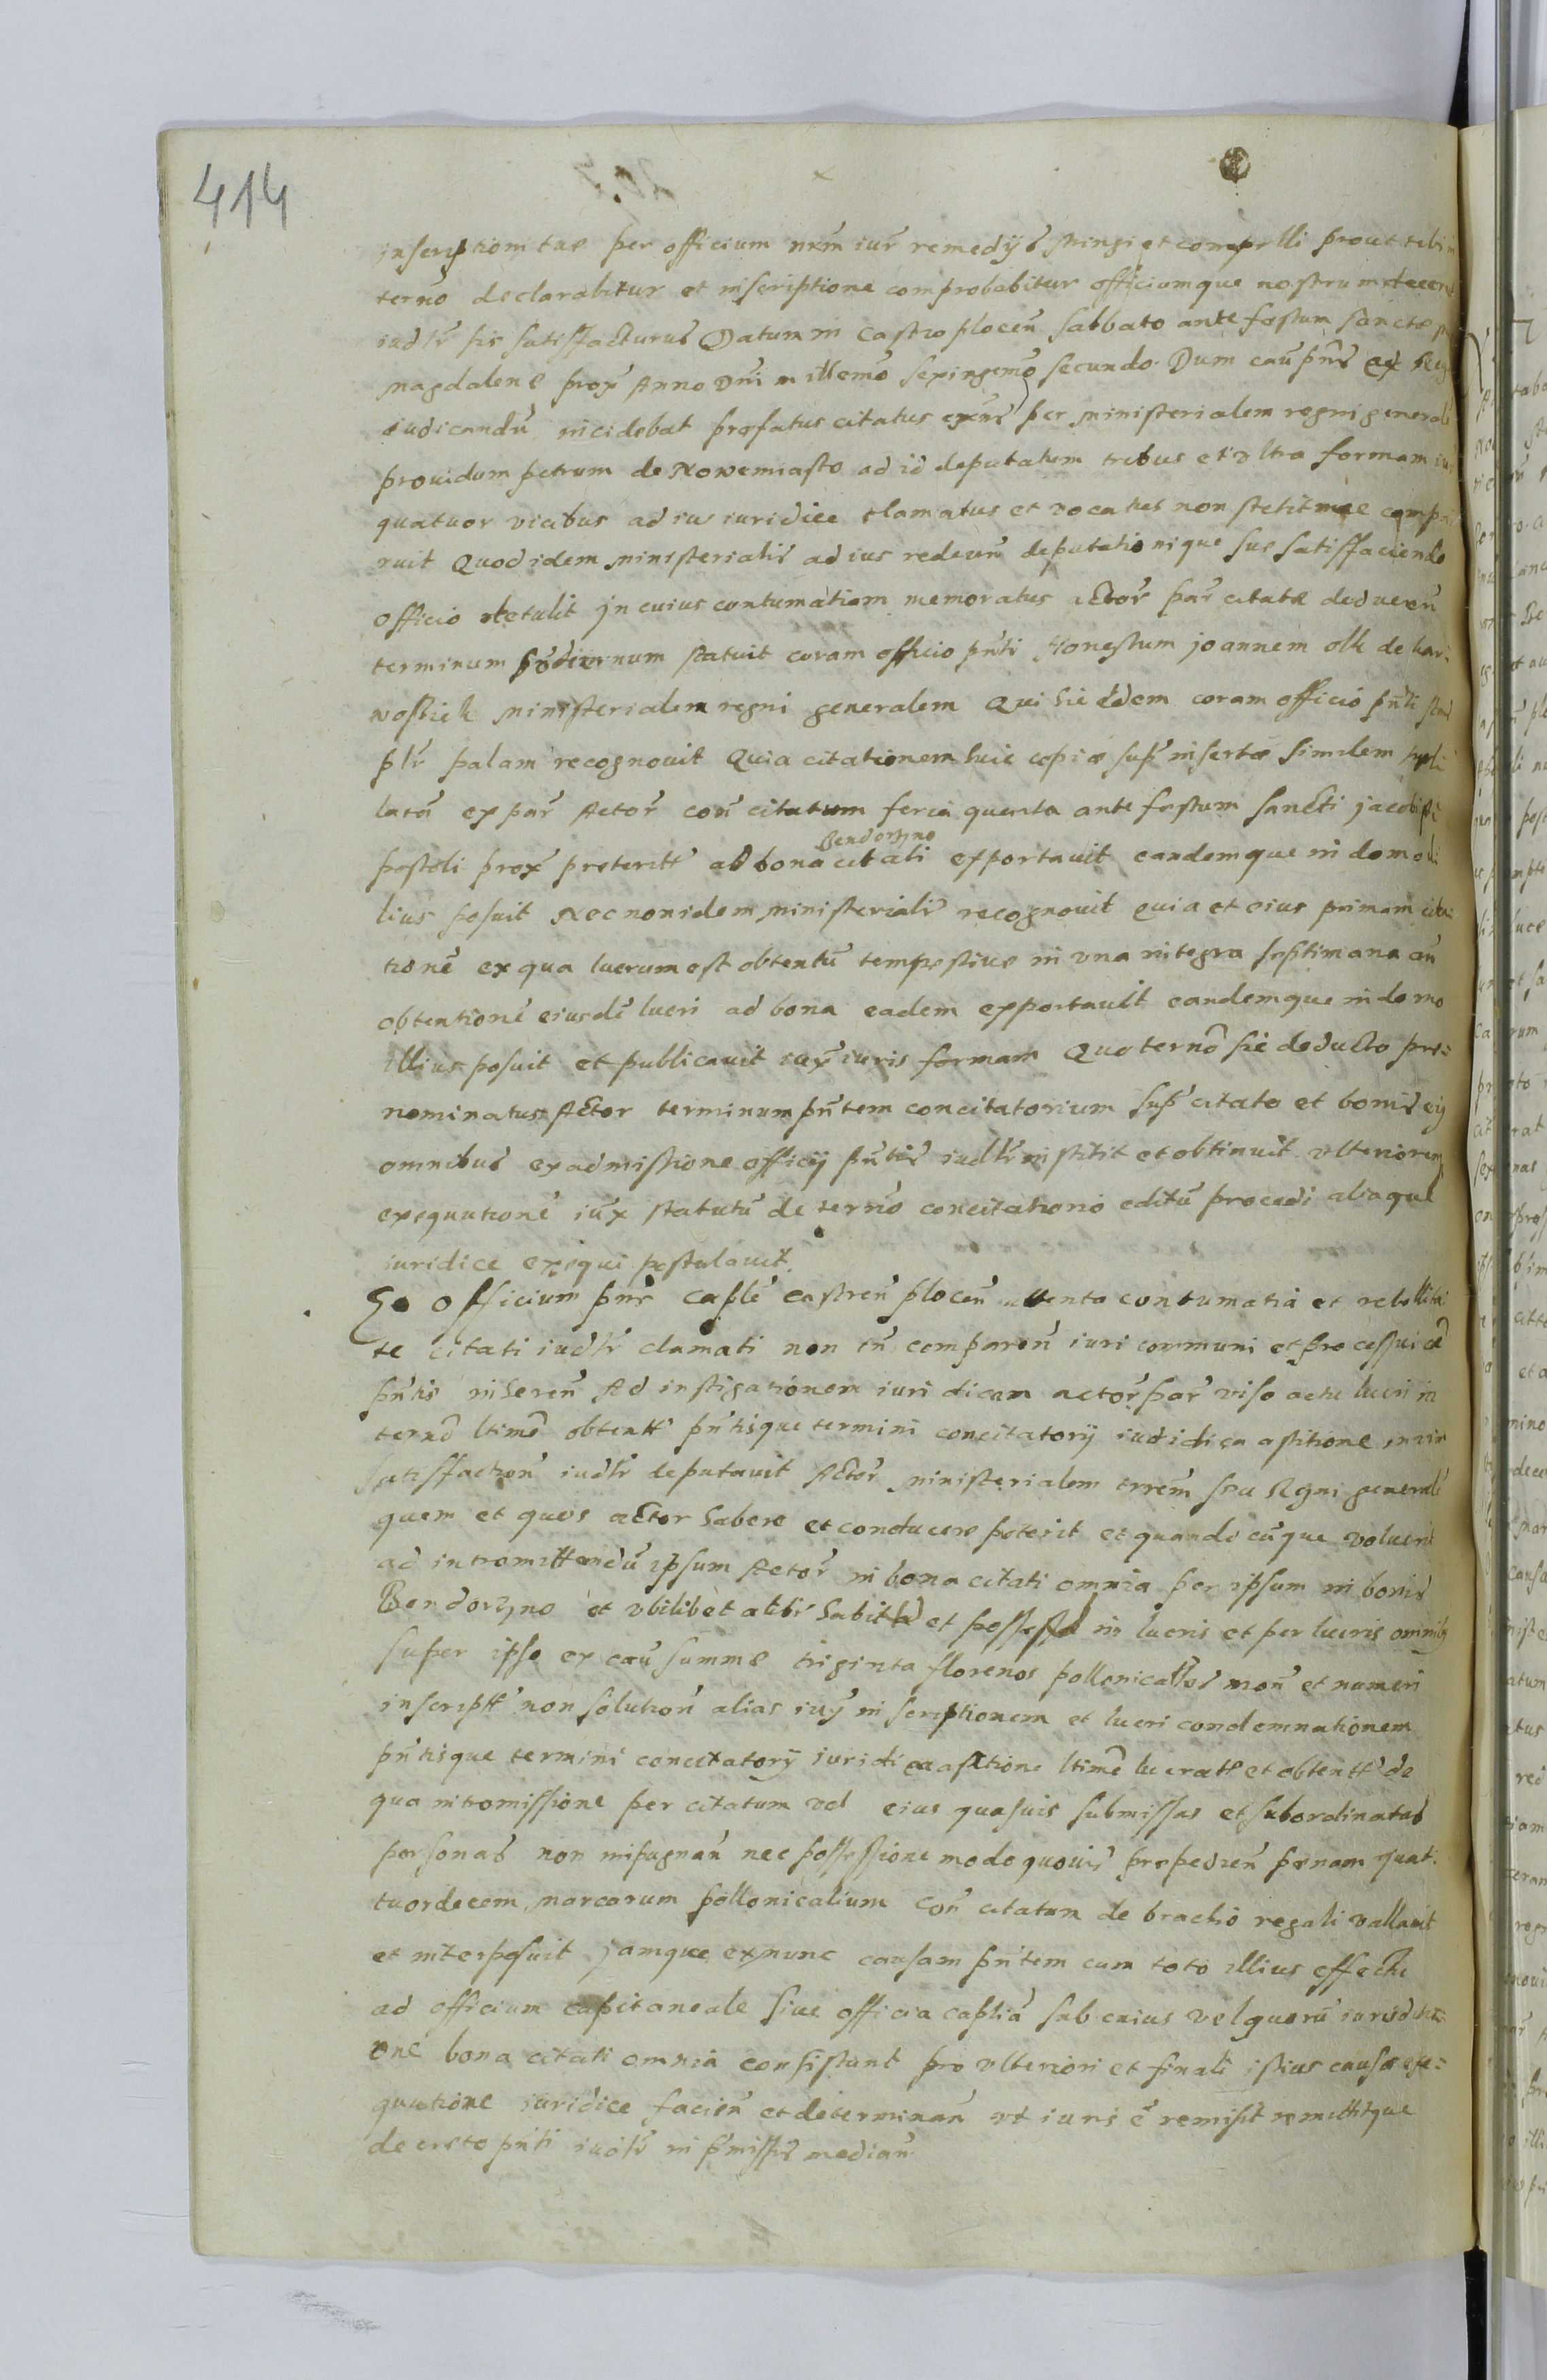 414
inscriptioni tue per officium nrm̃ iur̃ remedijs stringi et compelli prout tibi in
termõ declarabitur et inscriptione comprobabitur officiumque nostrum decern
iudlr̃ sis satisfacturus Datum in Castro plocen̄ Sabbato ante festum Sancte
Magdalene prox̃ Anno Dñi millemõ sexingemõ secundo. Dum caũ pñs ex Reg
iudicandũ incidebat prefatus citatus per ministerialem regni generale
prouidum petrum de Nowemiasto ad id deputatum tribus et vltra formam iur
quatuor vicibus ad ius iuridice clamatus et vocatus non stetit nec compa
ruit Quod idem ministerialis ad ius rediens deputationique sue satisfaciendo
officio retulit jn cuius contumatiam memoratus actor par̃ citate deducen̄
terminum hodiernum statuit coram officio pñti Honestum joannem olk de kar:
wosziek ministerialem regni generalem Qui hic eidem coram officio pñti stans
plr̃ palam recognouit Quia citationem huic copiæ sup̃ insertæ similem sigil
latã ex par̃ Actor̃ con̄ citatum feria quarta ante festum Sancti jacobi
postoli prox̃ preteritt ad bona citati exportauit eandemque in domo il
Bendorzyno
lius posuit Nec non idem ministerialis recognouit quia et eius primam cita:
tionẽ ex qua lucrum est obtentũ tempestiue in vna integra septimana añ
obtentionẽ eiusdẽ lucri ad bona eadem exportauit eandemque in domo
illius posuit et publicauit iux̃ iuris formam Quo termõ sic deducto pre:
nominatus Actor terminum pñtem concitatorium sup̃ citato et bonis eij
omnibus ex admissione officij pñtis iudlr̃ institit et obtinuit vlteriorem
exequutionẽ iux̃ statutũ de termõ concitatorio editũ procedi aliaque
iuridice exequi postulauit.
Et Officium pñs caplẽ castren̄ plocen̄ attenta contumatia et rebellita
te citati iudlr̃ clamati non tñ comparen̄ iuri communi et processui
pñtis inheren̄ Ad instigationem iuridicam actor̃ par̃ viso actu lucri in
termõ ltimẽ obtentt pñtisque termini concitatorij iuridica astitione in vim
satisfaction̄ iudlr̃ deputauit Actor̃ ministerialem trrem̃ seu Regni generalẽ
quem et quos actor habere et conducere poterit et quandocũque voluerit
ad intromittendũ ipsum Actor̃ in bona citati omnia per ipsum in bonis
Bendorzyno et vbilibet alibi habita et possessa in lucris et per lucris omnibus
super ipso ex caũ summe triginta florenos pollonicales mon̄ et numeri
inscriptt non solution̄ alias iux̃ inscriptionem et lucri condemnationem
pñtisque termini concitatorij iuridica astitione ltimẽ lucratt et obtentt de
qua intromissione per citatum vel eius quasuis submissas et subordinatas
personas non impugnan̄ nec possessione modo quouis prepedien̄ penam quat:
tuordecem marcarum pollonicalium con̄ citatum de brachio regali vallauit
et interposuit jamque exnunc causam pñtem cum toto illius effectu
ad officium capitaneale siue officia caplia sub cuius vel quorũ iurisdicti:
one bona citati omnia consistant pro vlteriori et finali istius causæ exe:
qutione iuridice facien̄ et determinan̄ vt iuris ẽ remisit remittitque
decreto pñti iudlr̃ in p̃missis median̄